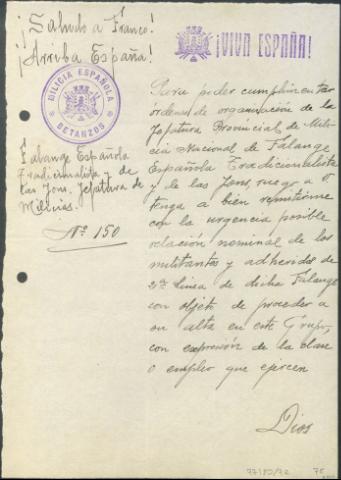 ¡Saludo a Franco!
¡Arriba España!
¡VIVA ESPAÑA!
MILICIA ESPAÑOLA
BETANZOS
Falange Española
Tradicionalista y de
las Jons. Jefatura de
Milicias.
Nº 150
Para poder cumplimentar
órdenes de organización de la
Jefatura Provincial de Mili
cia Nacional de Falange
Española Tradicionalista
y de las Jons, ruego a V
tenga a bien remitirme
con la urgencia posible
relación nominal de los
militantes y adheridos de
2ª linea de dicha Falange
con objeto de proceder a
su alta en este Grupo,
con expresión de la clase
o empleo que ejercen
Dios